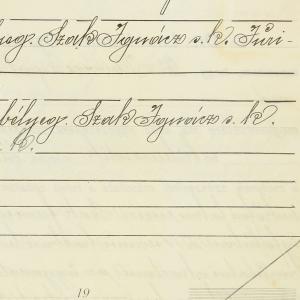 yeg. Szak Ignácz s. k. Füri-
bélyeg. Szak Ignácz s. k.
k.
19